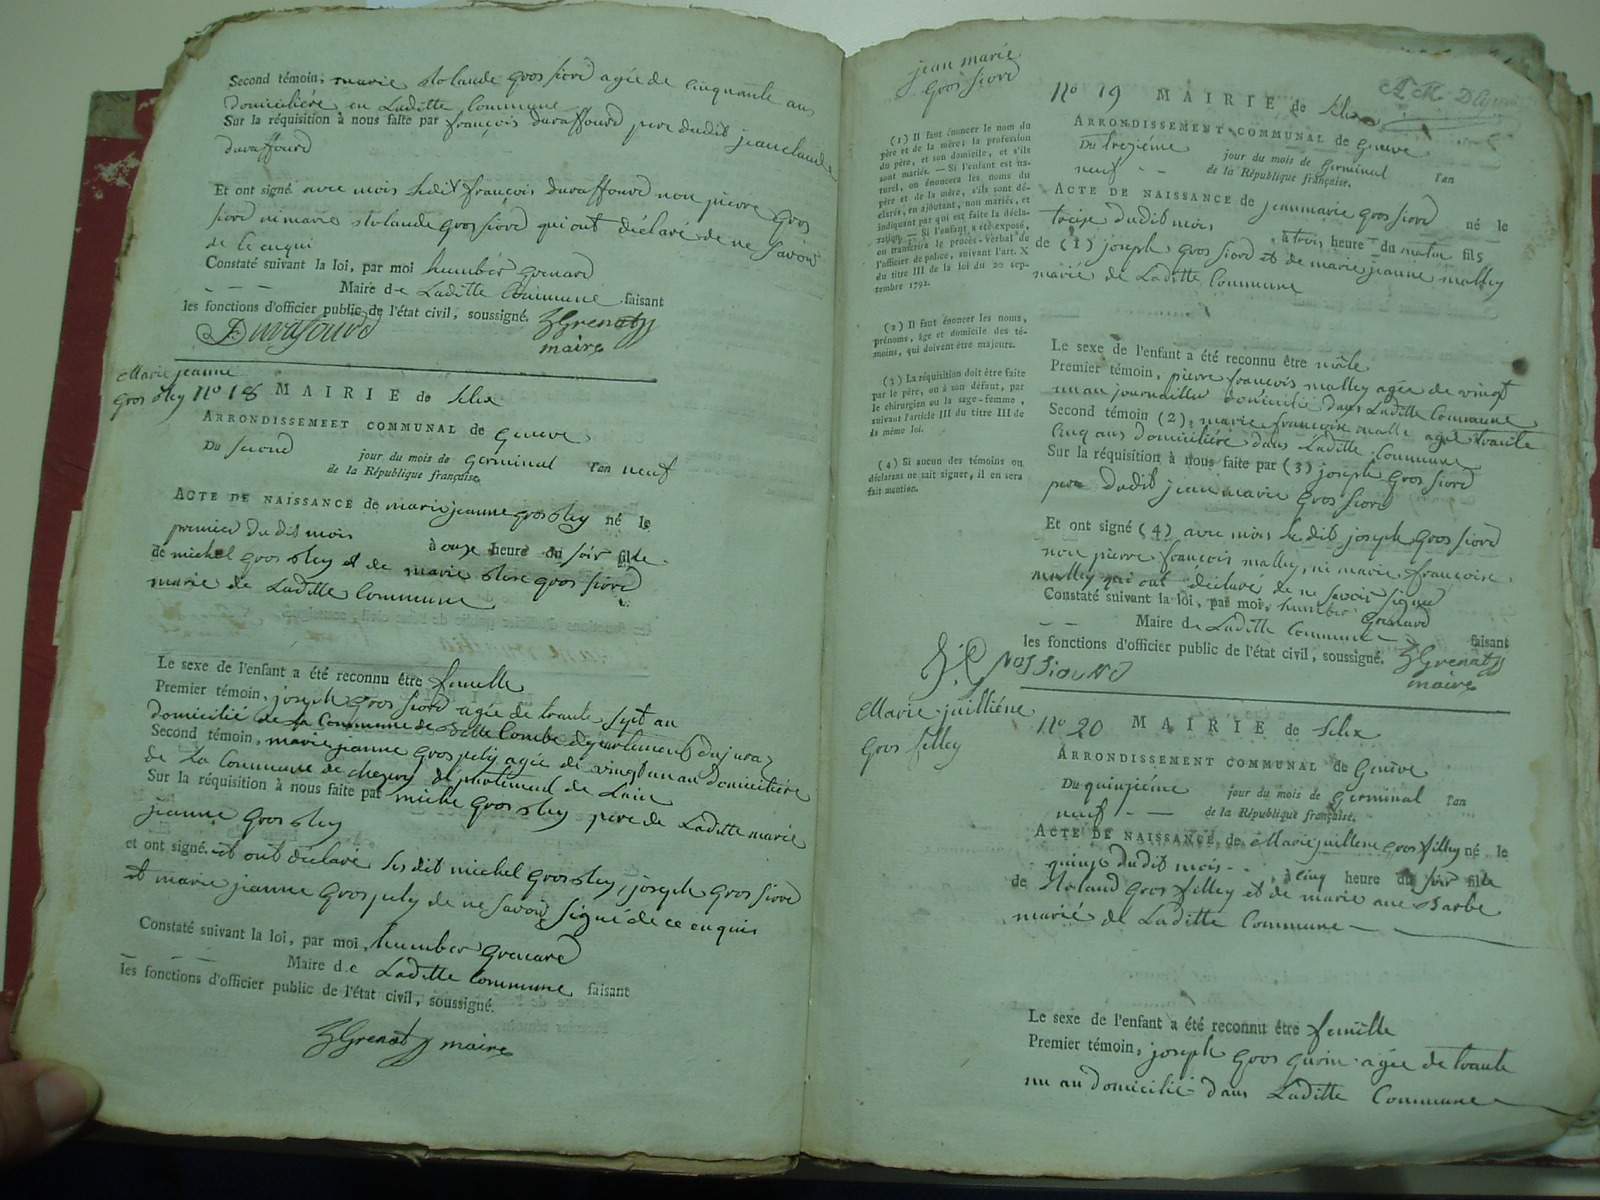 Second témoin, marie rolande gros fiord agée de cinquante ans
domiciliére en Laditte Commune
Sur la réquisition à nous faite par françois duraffourd pere dudit jean claude
duraffourd
Et ont signé avec mois ledit françois duraffourd non pierre gros
fiord ni marie rolande gros fiord qui ont déclaré de ne savoir
de ce enqui
Constaté suivant la loi, par moi humber grenard
Maire de Laditte Commune faisant
les fonctions d'officier public de l'état civil, soussigné. Grenat
maire
Marie jeanne
gros
No 18 MAIRIE de Lelex
ARRONDISSEMEET COMMUNAL de geneve
Du second jour du mois de germinal l'an neuf
de la République française.
ACTE DE NAISSANCE de marie jeanne gros né le
premier du dit mois à onze heure du soir fille
de michel gros et de marie rose gros fiord
marié de Laditte Commune
Le sexe de l'enfant a été reconnu être femelle
Premier témoin, joseph gros fiord agée de trante sept an
domicilié de la Commune de Belle Combe departement du jura
Second témoin, marie jeanne gros pely agée de vingt un an domiciliére
de la Commune de departement de Lain
Sur la réquisition à nous faite par michel gros pere de Laditte marie
jeanne gros
et ont signé. et ont déclaré les dit michel gros, joseph gros fiord
et marie jeanne gros pely de ne savoir signé de ce enquis
Constaté suivant la loi, par moi, humber grenard
Maire de Laditte Commune faisant
les fonctions d'officier public de l'état civil, soussigné.
Grenat maire
jean marie
gros fiord
(1) Il faut énoncer le nom du
père et de la mère; la profession
du père, et son domicile, et s'ils
sont mariés. — Si l'enfant est na-
turel, on énoncera les noms du
père et de la mère, s'ils sont dé-
clarés, en ajoutant, non mariés, et
indiquant par qui est faite la décla-
ration. — Si l'enfant a été exposé,
on transcrira le procès-verbal de
l'officier de police, suivant l'art. X
du titre III de la loi du 20 sep-
tembre 1792.
(2) Il faut énoncer les noms,
prénoms, âge et domicile des té-
moins, qui doivent être majeurs.
(3) La réquisition doit être faite
par le père, ou à son défaut, par
le chirurgien ou la sage-femme,
suivant l'article III du titre III de
la même loi.
(4) Si aucun des témoins ou
déclarans ne sait signer, il en sera
fait mention.
No 19 MAIRIE de Lelex
ARRONDISSEMENT COMMUNAL de geneve
Du trezième jour du mois de germinal l'an
neuf - - de la République française.
ACTE DE NAISSANCE de jean marie gros fiord né le
treize dudit mois, à trois heure du matin fils
de (1) joseph gros fiord et de marie jeanne malley
marié de Laditte Commune
Le sexe de l'enfant a été reconnu être mâle
Premier témoin, pierre françois malley agée de vingt
un an journallier domicilié dans Laditte Commune
Second témoin (2), marie françoise malle agé trante
cinq ans domiciliére dans Laditte Commune
Sur la réquisition à nous faite par (3) joseph gros fiord
pere dudit jean marie gros fiord
Et ont signé (4) avec mois le dit joseph gros fiord
non pierre françois malley, ni marie françoise
malley qui ont déclaré de ne savoir signé
Constaté suivant la loi, par moi, humber grenard
Maire de Laditte Commune faisant
les fonctions d'officier public de l'état civil, soussigné. Grenat
maire
Marie juilliéne
gros filley
No 20 MAIRIE de Lelex
ARRONDISSEMENT COMMUNAL de Genève
Du quinzième jour du mois de Germinal l'an
neuf - — de la République française.
ACTE DE NAISSANCE de Marie juillene gros filley né le
quinze dudit mois - - à cinq heure du soir fille
de Roland gros filley et de marie ane Barbe
marié de Laditte Commune
Le sexe de l'enfant a été reconnu être femelle
Premier témoin, joseph gros gurin agée de trante
un an domicilié dans Laditte Commune